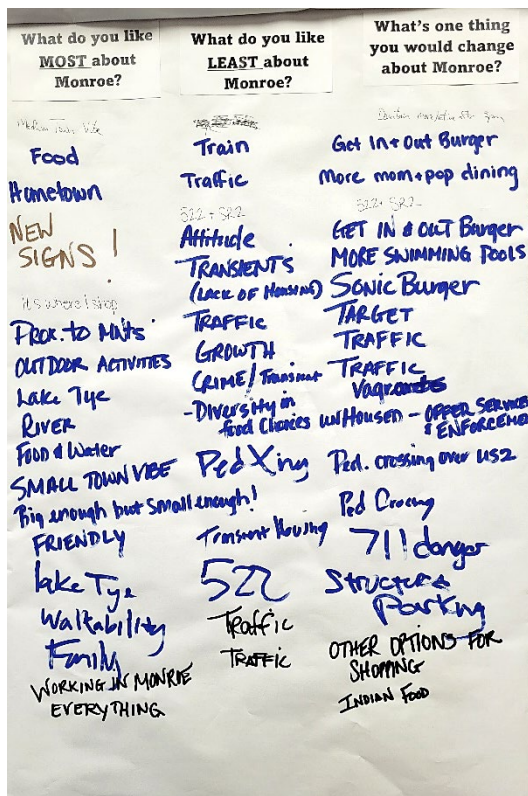 What do you like
MOST about
Monroe?
Food
Hometown
NEW
SIGNS!
it's where I shop
PROX. TO MNTS
OUTDOOR ACTIVITIES
Lake Tye
RIVER
Food & Water
SMALL TOWN VIBE
Big enough but small enough!
FRIENDLY
lake Tye
Waltability
Family
WORKING IN MONROE
EVERYTHING
What do you like
LEAST about
Monroe?
Train
Traffic
522 + SR2
Attitude
TRANSIENTS
(LACK OF HOUSING)
TRAFFIC
GROWTH
CRIME/Transient
-Diversity in
food Choices
Ped Xing
Transient Housing
522
Traffic
TRAFFIC
What's one thing
you would change
about Monroe?
Get In + Out Burger
More mom + pop dining
522 + SR2
GET IN & OUT Burger
MORE SWIMMING POOLS
SONIC Burger
TARGET
TRAFFIC
TRAFFIC
UNHOUSED - OFFER SERVICES
& ENFORCEME
Ped. crossing over US2
Ped Crossing
711 danger
Structure
Parking
OTHER OPTIONS FOR
SHOPPING
INDIAN FOOD